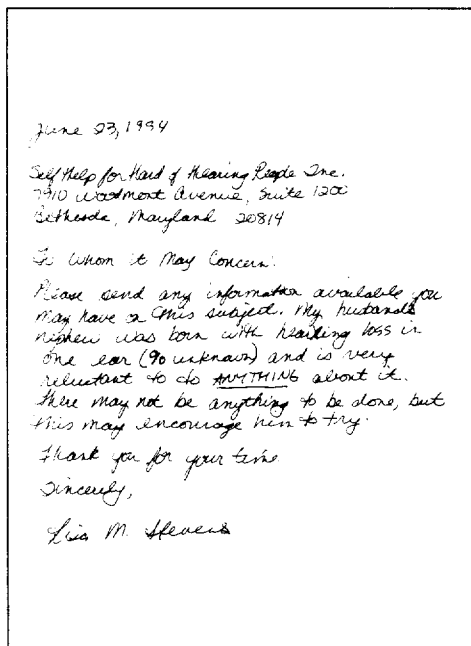 June 23, 1994
Self Help for Hard of Hearing People Inc.
7910 Woodmont Avenue, Suite 1200
Bethesda, Maryland 20814
To Whom it May Concern:
Please send any information available you
may have on this subject. My husband's
nephew was born with hearing loss in
one ear (% unknown) and is very
reluctant to do ANYTHING about it.
There may not be anything to be done, but
this may encourage him to try.
Thank you for your time
Sincerely,
Lisa M. Stevens